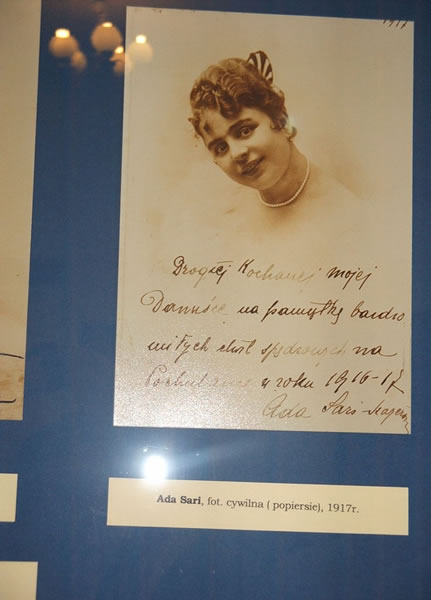 1917
Drogiej Kochanej mojej
na pamiątkę bardzo
miłych chwil spędzonych na
w roku 1916-17
Ada Sari
Ada Sari, fot. cywilna ( popiersie), 1917r.